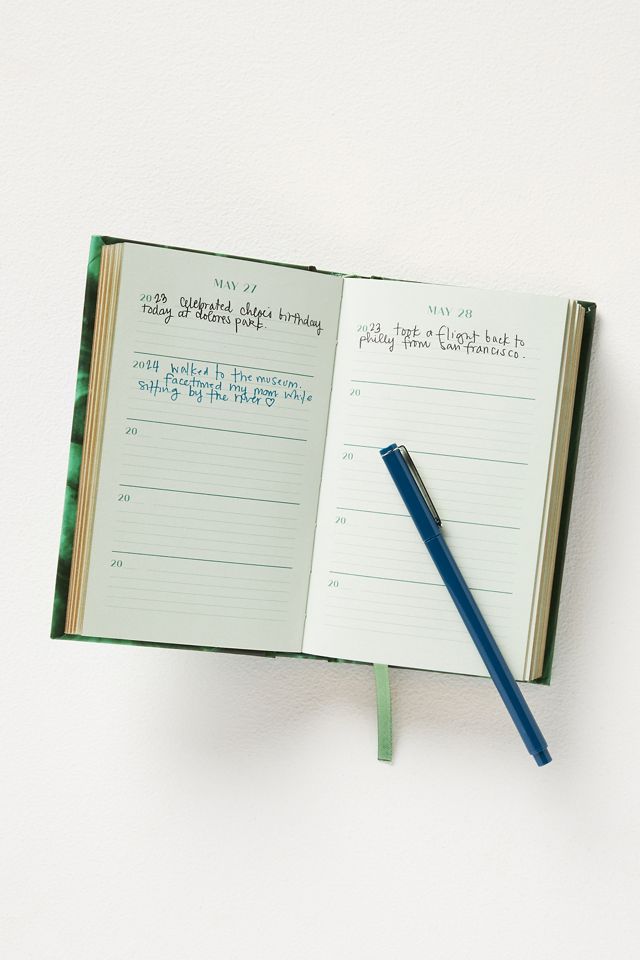 MAY 27
2023 celebrated chloe's birthday
today at dolores park.
2024 walked to the museum.
facetimed my mom while
sitting by the river ♡
20
20
20
MAY 28
2023 took a flight back to
philly from san francisco.
20
20
20
20